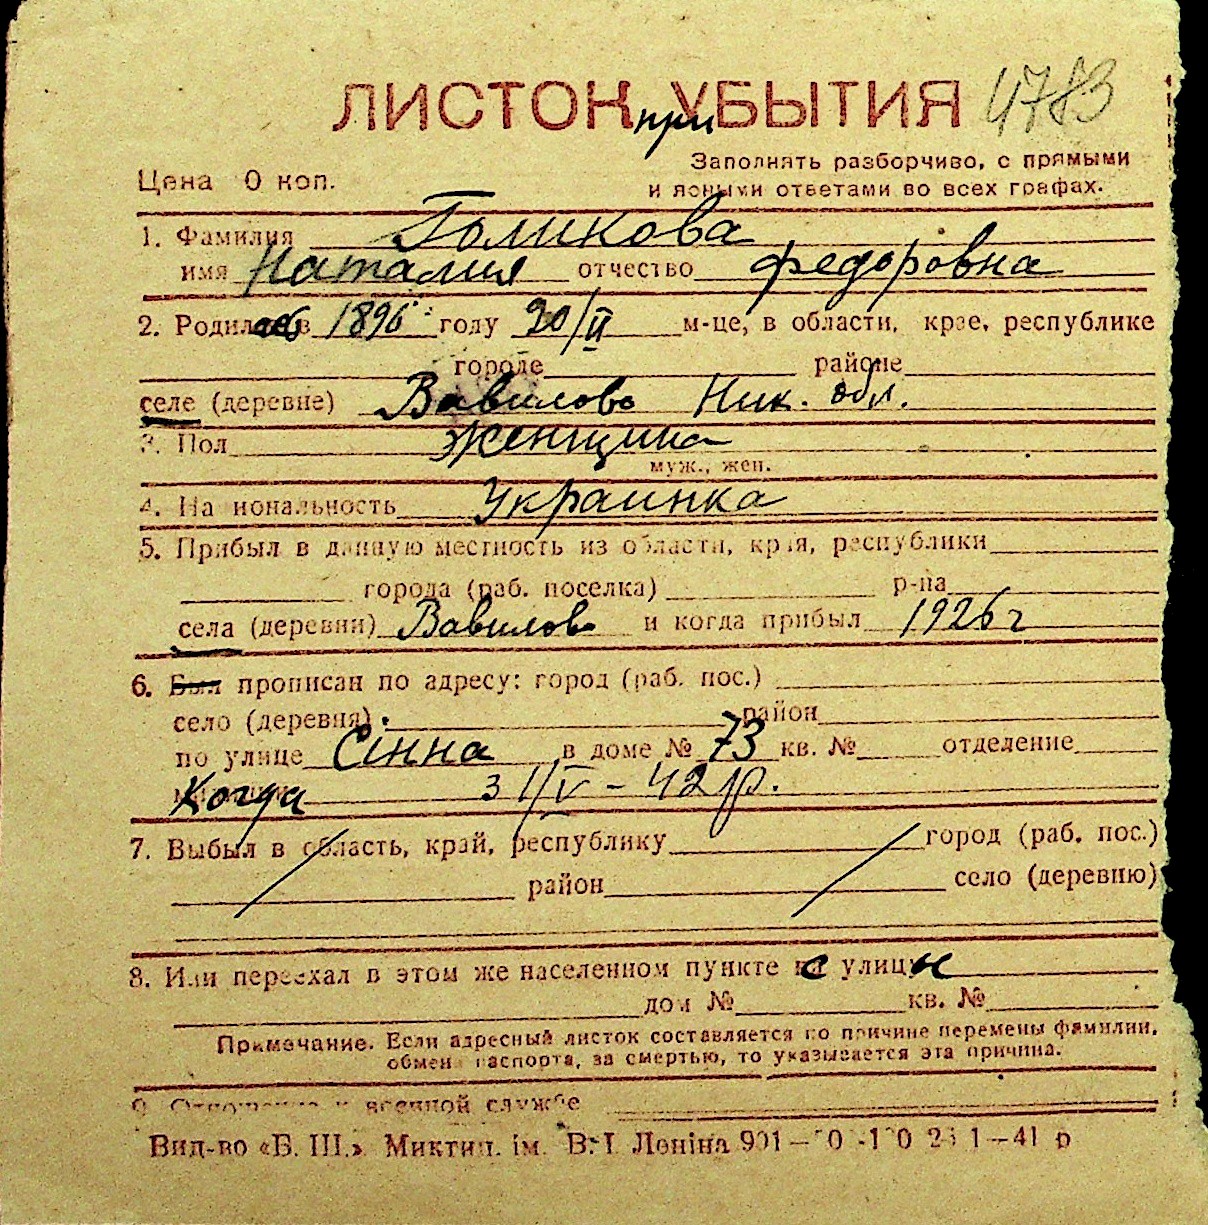 ЛИСТОК при УБЫТИЯ 4783
Заполнять разборчиво, с прямыми
Цена 0 коп.
и ясными ответами во всех графах.
1. Фамилия Голикова
имя Наталия отчество Федоровна
2. Родилась в 1896 году 20/II м-це, в области, крае, республике
городе районе
селе (деревне) Вавилово Ник. обл.
3. Пол женщина
муж., жен.
4. Национальность Украинка
5. Прибыл в данную местность из области, края, республики
города (раб. поселка) р-на
села (деревни) Вавилово и когда прибыл 1926 г
6. Был прописан по адресу: город (раб. пос.)
село (деревня) район
по улице Сінна в доме № 73 кв. № отделение
Когда З 1/V - 42 р.
7. Выбыл в область, край, республику город (раб. пос.)
район село (деревню)
8. Или переехал в этом же населенном пункте с улицы
дом № кв. №
Примечание. Если адресный листок составляется по причине перемены фамилии,
обмена паспорта, за смертью, то указывается эта причина.
9. Отношение к военной службе
Вид-во «Б. Ш.» Миктип. ім. В. І. Леніна 901 41 р